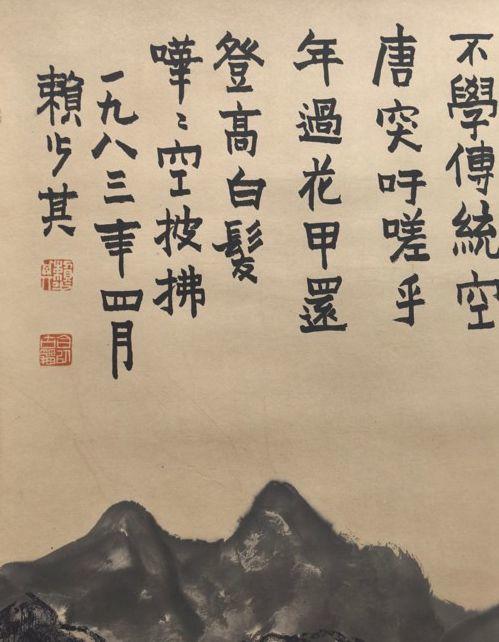 不學傳統空
唐突吁嗟乎
年過花甲還
登高白髮
嘩〻空披拂
一九八三年四月
賴少其